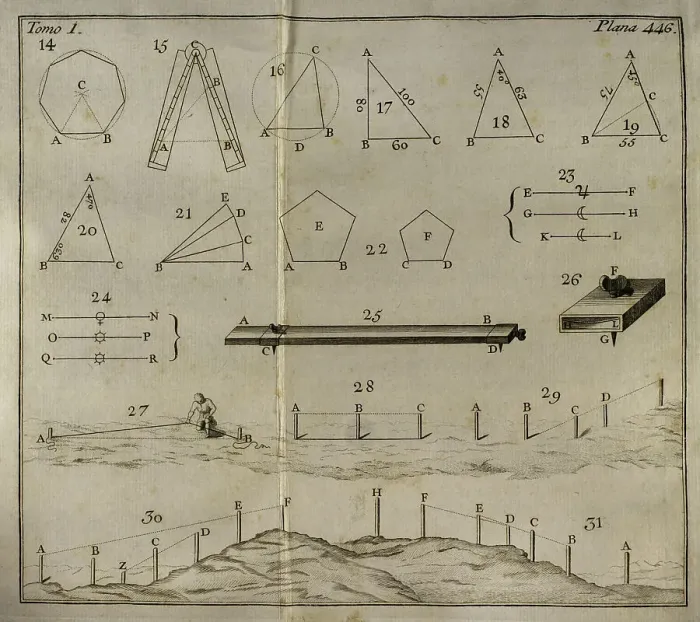 Tomo 1.
Plana 446.
14
C
A B
15
C
B
A B
16
C
A B
D
17
A
80 100
B 60 C
18
A
40°
55 63
B C
19
A
45°
75
C
B C
55
20
A
47°
82
63°
B C
21
E
D
C
B A
22
E
A B
F
C D
23
E ♃ F
G ☾ H
K ☾ L
24
M ♀ N
O P
Q R
25
A B
C D
26
F
L
G
27
A B
28
A B C
29
A B C D
30
A B Z C D E F
31
H F E D C B A